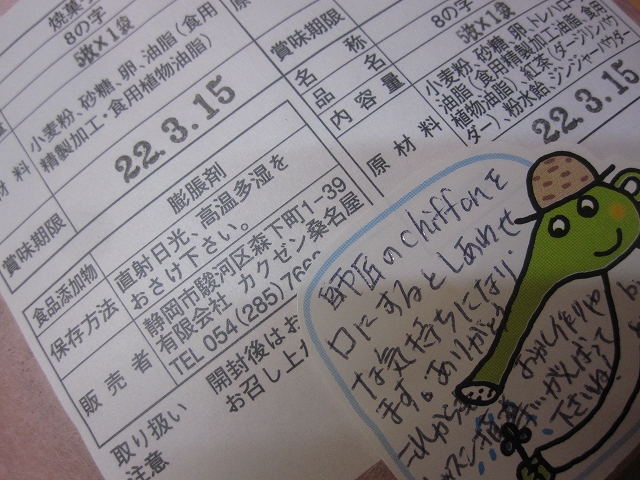 焼菓子
8の字
5枚×1袋
小麦粉、砂糖、卵、油脂(食用
精製加工・食用植物油脂)
22.3.15
賞味期限
食品添加物 膨脹剤
保存方法 直射日光、高温多湿を
おさけ下さい。
販売者 静岡市駿河区森下町1-39
有限会社 カクゼン桑名屋
TEL 054(285)766
取り扱い 開封後はお
注意 お召し上が
賞味期限
名称
品名 8の字
内容量 5枚×1袋
原材料 小麦粉、砂糖、卵、トレハロー
油脂(食用精製加工油脂、食用
植物油脂)、紅茶(ダージリンパウ
ダー)、粉水飴、ジンジャーパウダー
22.3.15
師匠のchiffonを
口にするとしあわせ
な気持ちになり
ます。ありがと
これからも
おかし作りや
がんばって
下さいね